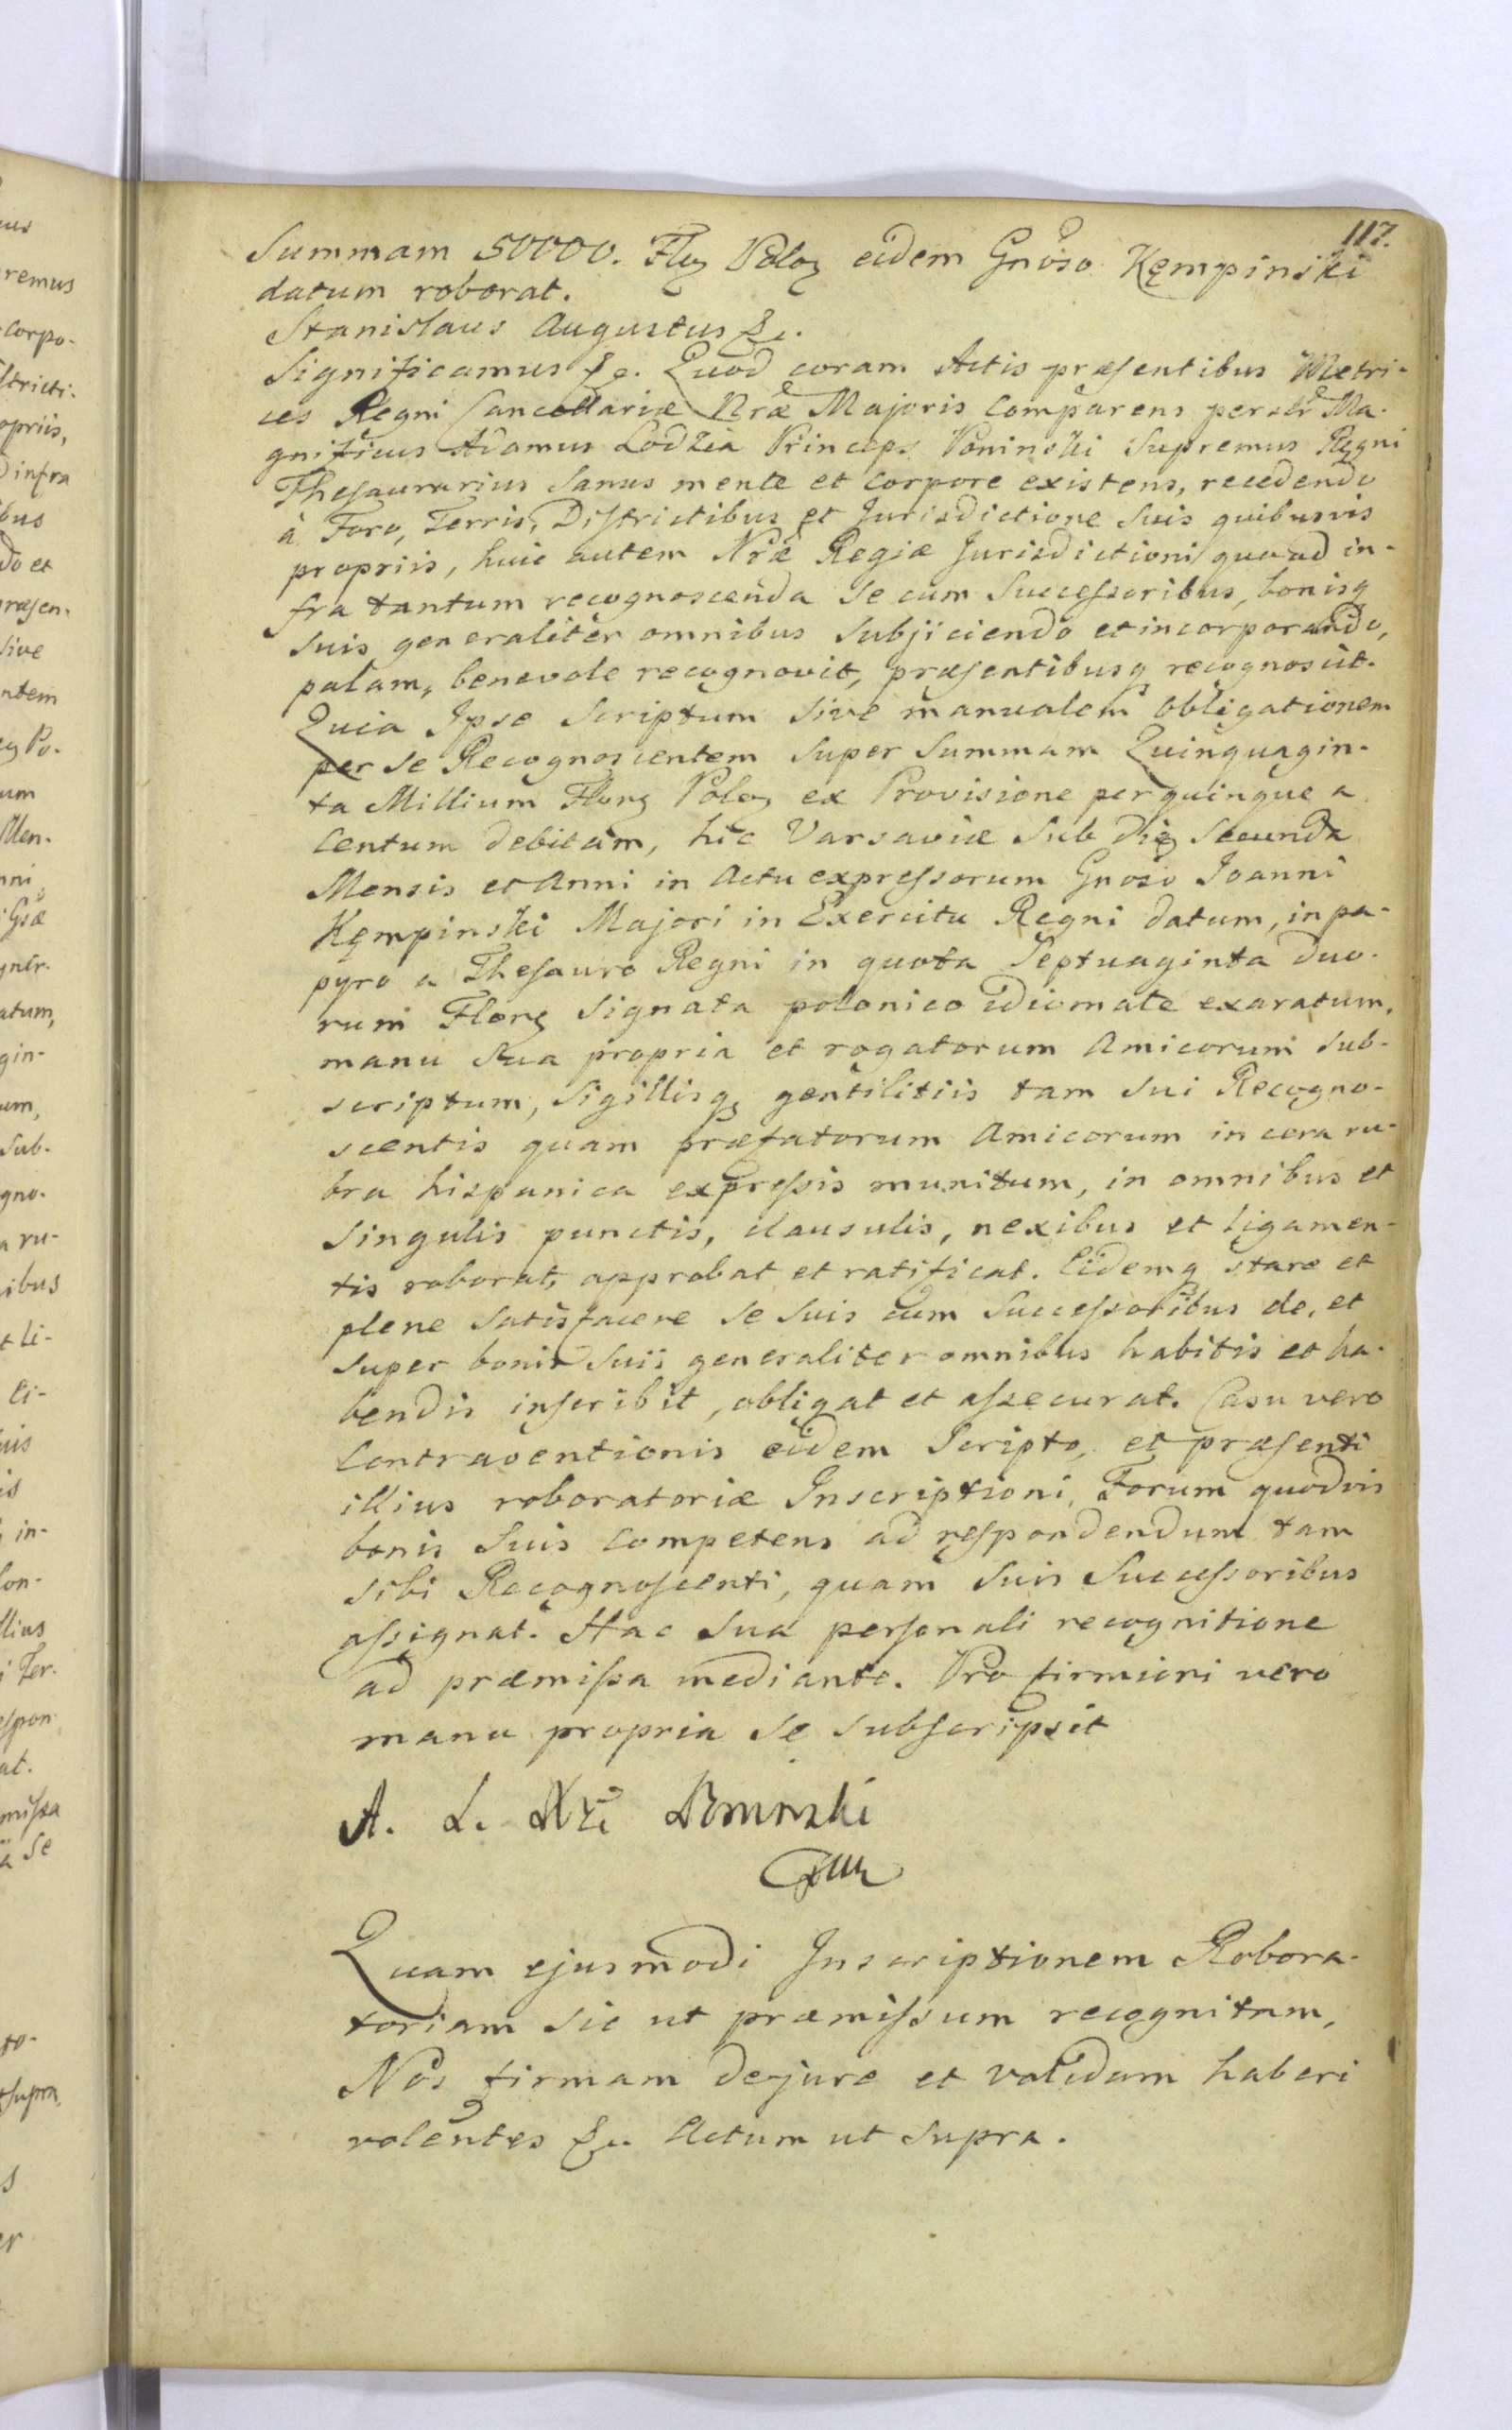 117.
Summam 50000. Floꝝ Poloꝝ eidem Gnoso Kęmpinski
datum roborat.
Stanislaus Augustus &c.
Significamus &c. Quod coram Actis præsentibus Metri-
ces Regni Cancellariæ Nræ Majoris Comparens personlr Ma-
gnificus Adamus Lodzia Princeps Poninski Supremus Regni
Thesaurarius Sanus mente et corpore existens, recedendo
à Foro, Terris, Districtibus et Jurisdictione Suis quibusvis
propriis, huic autem Nræ Regiæ Jurisdictioni quoad in-
fra tantum recognoscenda Se cum Successoribus, bonisq
suis generaliter omnibus Subjiciendo et incorporando,
palam, benevole recognovit, præsentibusq recognoscit.
Quia Ipse Scriptum sive manualem Obligationem
per se Recognoscentem super Summam Quinquagin-
ta Millium Floroꝝ Poloꝝ ex Provisione per quinque a
Centum debitam, hic Varsaviæ Sub die Secunda
Mensis et Anni in Actu expressorum Gnoso Joanni
Kęmpinski Majori in Exercitu Regni datum, in pa-
pyro a Thesauro Regni in quota Septuaginta duo-
rum Floroꝝ Signata polonico idiomate exaratum,
manu sua propria et rogatorum Amicorum Sub-
scriptum, Sigillisq gentilitiis tam Sui Recogno-
scentis quam præfatorum Amicorum in cera ru-
bra hispanica expressis munitum, in omnibus et
Singulis punctis, clausulis, nexibus et ligamen-
tis roborat, approbat et ratificat. Eidemq stare et
plene Satisfacere se suis cum Successoribus de, et
super bonis suis generaliter omnibus habitis et ha-
bendis inscribit, obligat et assecurat. Casu vero
Contraventionis eidem Scripto, et præsenti
illius roboratoriæ Inscriptioni, Forum quodvis
bonis Suis Competens ad respondendum tam
sibi Recognoscenti, quam Suis Successoribus
assignat. Hac Sua personali recognitione
ad præmissa mediante. Pro firmiori vero
manu propria Se subscripsit
A. L. Xże Poninski
Quam ejusmodi Inscriptionem Robora-
toriam sic ut præmissum recognitam,
Nos firmam de jure et validam haberi
volentes &c. Actum ut Supra.